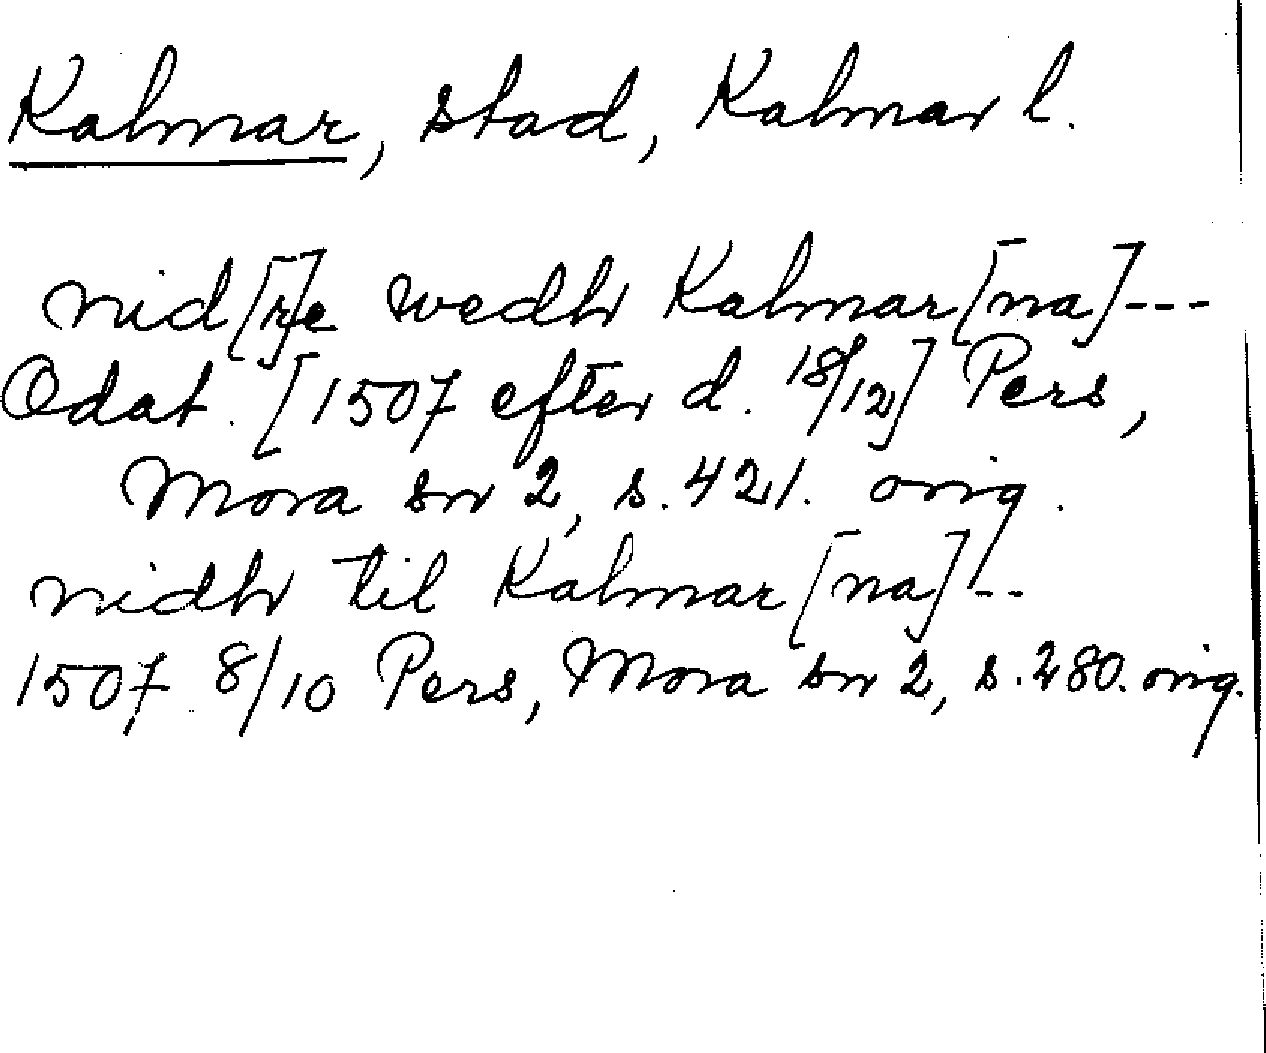 Kalmar, stad, Kalmar l.
nid[r]e wedh Kalmar[na]---
Odat. [1507 efter d. 18/12] Pers,
Mora sn 2, s. 421. orig.
nidh til Kalmar[na]--
1507 8/10 Pers, Mora sn 2, s. 280. orig.